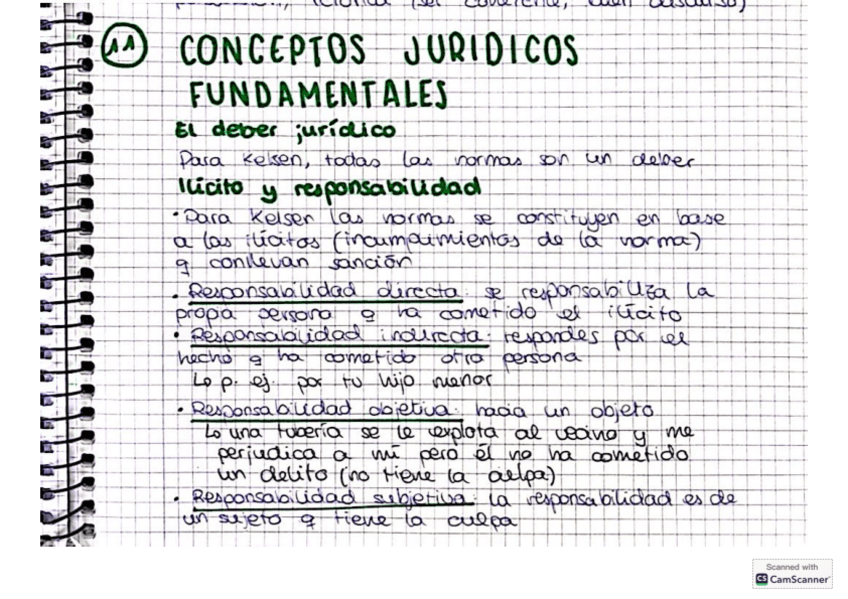 (ser coherente, buen discurso)
11 CONCEPTOS JURIDICOS
FUNDAMENTALES
El deber jurídico
Para Kelsen, todas las normas son un deber
Ilícito y responsabilidad
· Para Kelsen las normas se constituyen en base
a los ilícitos (incumplimientos de la norma)
q conllevan sanción
· Responsabilidad directa: se responsabiliza la
propia persona q ha cometido el ilícito
· Responsabilidad indirecta: respondes por el
hecho q ha cometido otra persona
↳ p. ej. por tu hijo menor
· Responsabilidad objetiva: hacia un objeto
↳ una tubería se le explota al vecino y me
perjudica a mí pero él no ha cometido
un delito (no tiene la culpa)
· Responsabilidad subjetiva: la responsabilidad es de
un sujeto q tiene la culpa
Scanned with
CS CamScanner